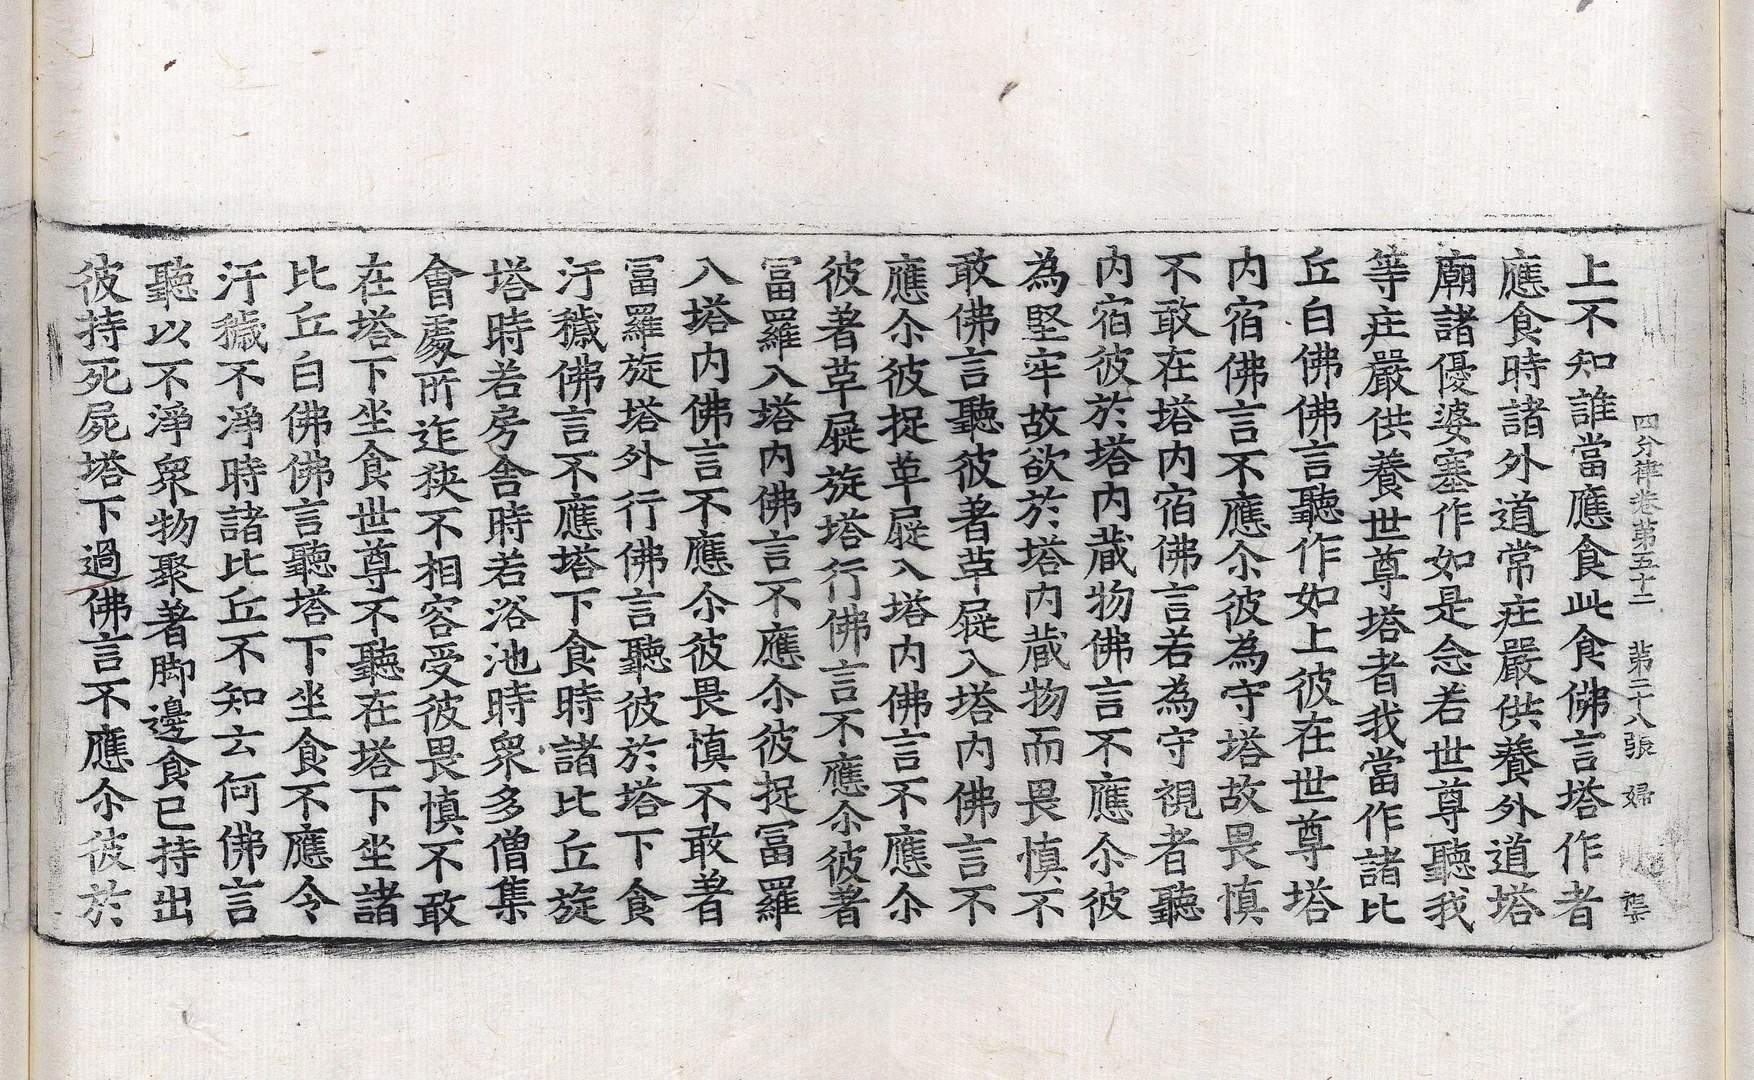 四分律卷第五十二 第二十八張 婦
上不知誰當應食此食佛言塔作者
應食時諸外道常庄嚴供養外道塔
廟諸優婆塞作如是念若世尊聽我
等庄嚴供養世尊塔者我當作諸比
丘白佛佛言聽作如上彼在世尊塔
内宿佛言不應尒彼為守塔故畏慎
不敢在塔内宿佛言若為守視者聽
内宿彼於塔内蔵物佛言不應尒彼
為堅牢故欲於塔内蔵物而畏慎不
敢佛言聽彼著草屣入塔内佛言不
應尒彼捉草屣入塔内佛言不應尒
彼著草屣旋塔行佛言不應尒彼著
冨羅入塔内佛言不應尒彼捉冨羅
入塔内佛言不應尒彼畏慎不敢著
冨羅旋塔外行佛言聽彼於塔下食
汙穢佛言不應塔下食時諸比丘旋
塔時若房舍時若浴池時衆多僧集
會處所迮狹不相容受彼畏慎不敢
在塔下坐食世尊不聽在塔下坐諸
比丘白佛佛言聽塔下坐食不應令
汙穢不淨時諸比丘不知云何佛言
聽以不淨衆物聚著脚邊食已持出
彼持死屍塔下過佛言不應尒彼於